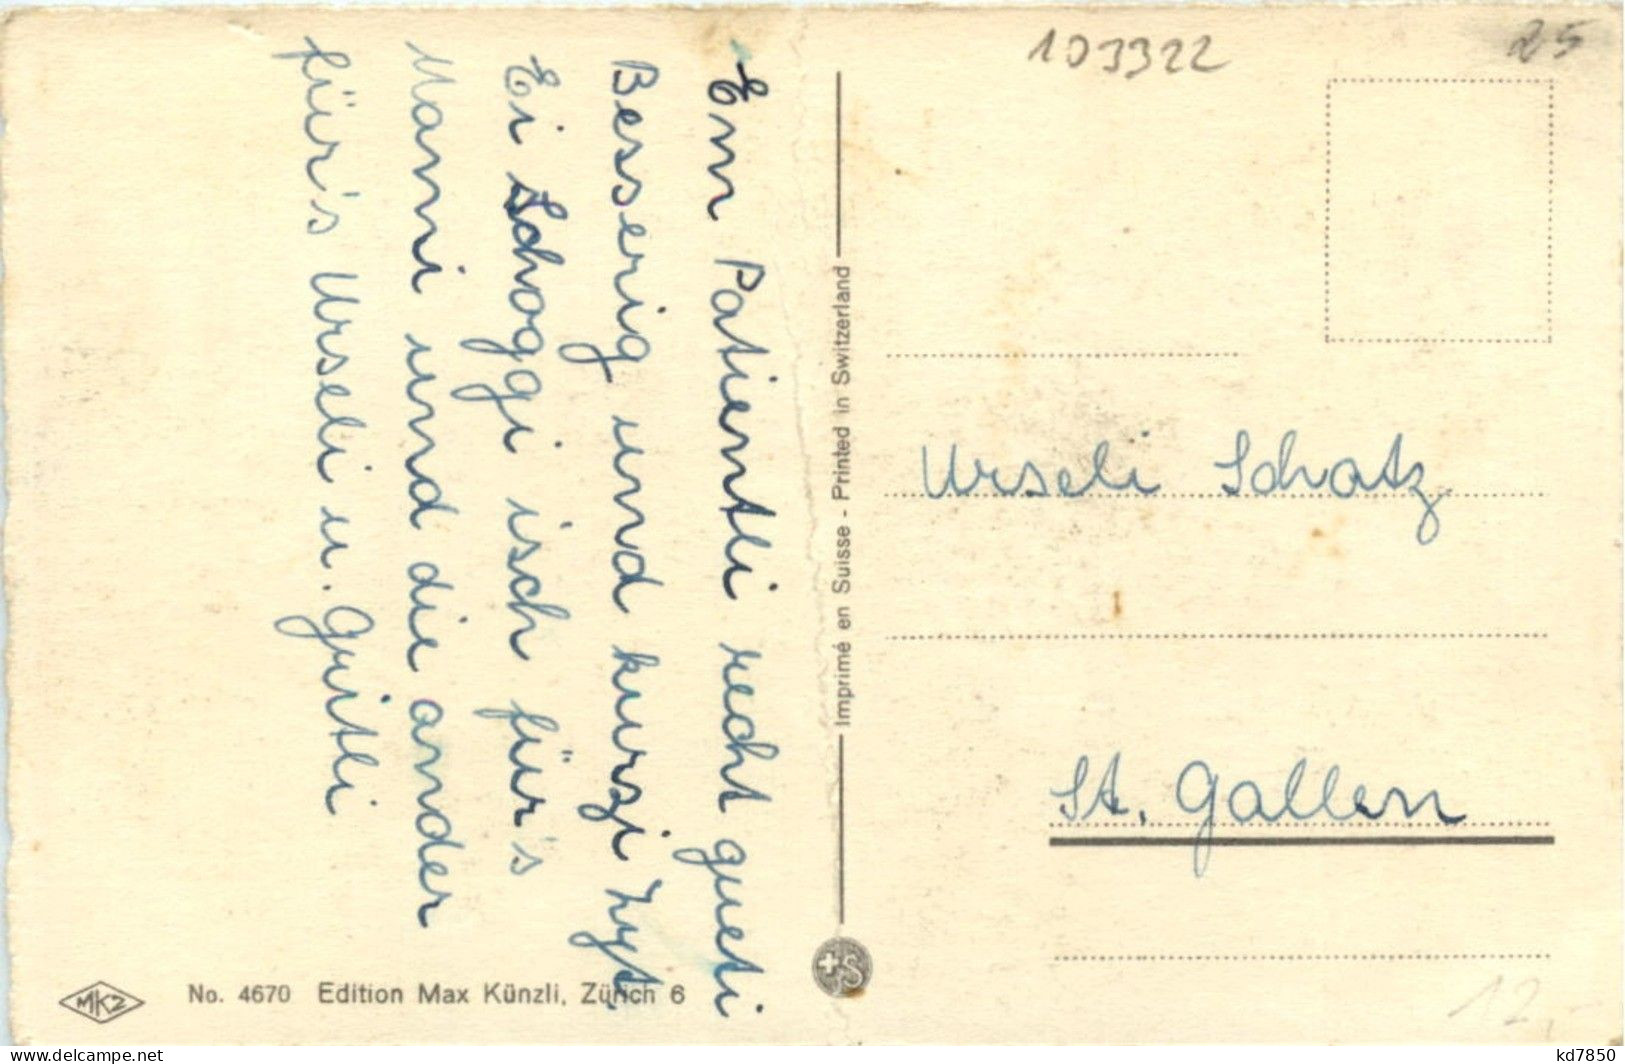 Em Patientli recht gueti
Besserig und kurzi Zyt.
Ei Schoggi isch für's
Mami und die ander
für's Urseli u. Guitli
103322
25
Imprimé en Suisse - Printed in Switzerland
Urseli Schatz
St. Gallen
MKZ
No. 4670 Edition Max Künzli, Zürich 6
12,-
www.delcampe.net
kd7850